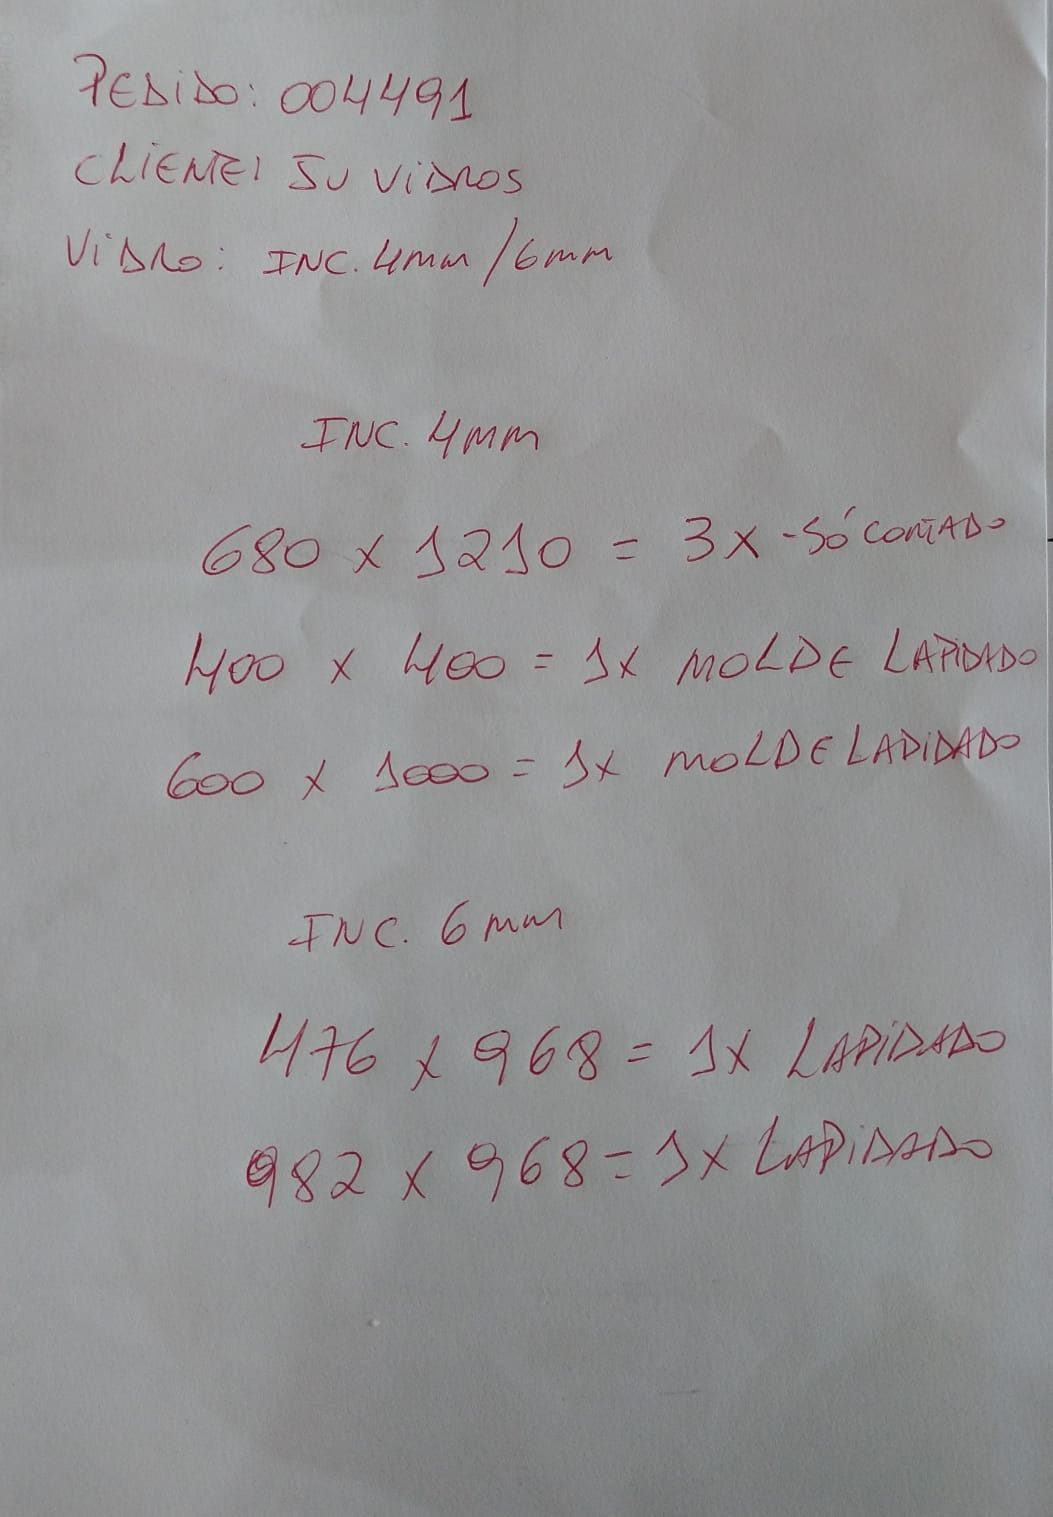 PEDIDO: 004491
CLIENTE: SU VIDROS
VIDRO: INC. 4mm/6mm
INC. 4mm
680 x 1210 = 3x - SÓ CORTADO
400 x 400 = 1x MOLDE LAPIDADO
600 x 1000 = 1x MOLDE LAPIDADO
INC. 6mm
476 x 968 = 1x LAPIDADO
982 x 968 = 1x LAPIDADO